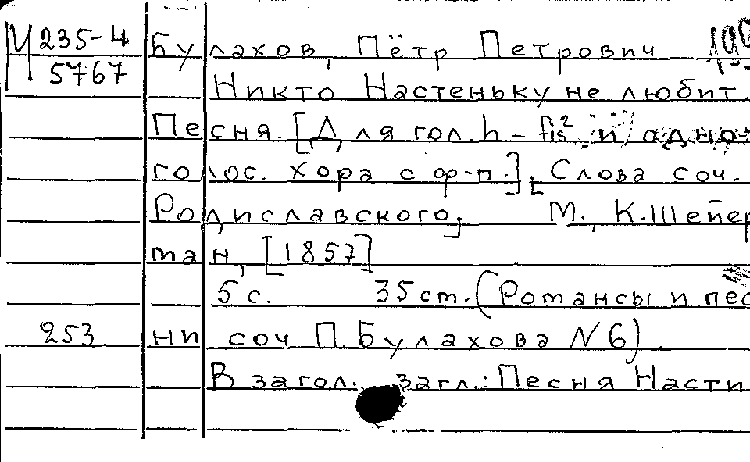 М 235-4 Булахов, Пётр Петрович
5767 Никто Настеньку не любит.
Песня. [Для гол. h - fis² и одно-
голос. хора с ф-п.]. Слова соч.
Родиславского. М., К. Шейер
ман, [1857]
5 с. 35 см. (Романсы и пес
253 ни соч П. Булахова N 6)
В загол. загл.: Песня Насти